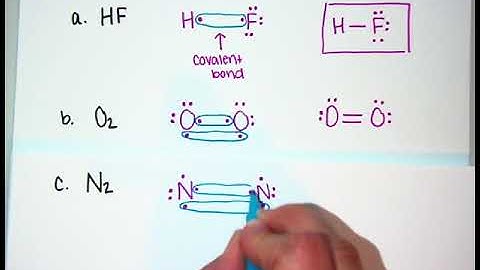 a. HF H F: H—F:
Covalent
bond
b. O₂ :O O: :O=O:
c. N₂ :N N: